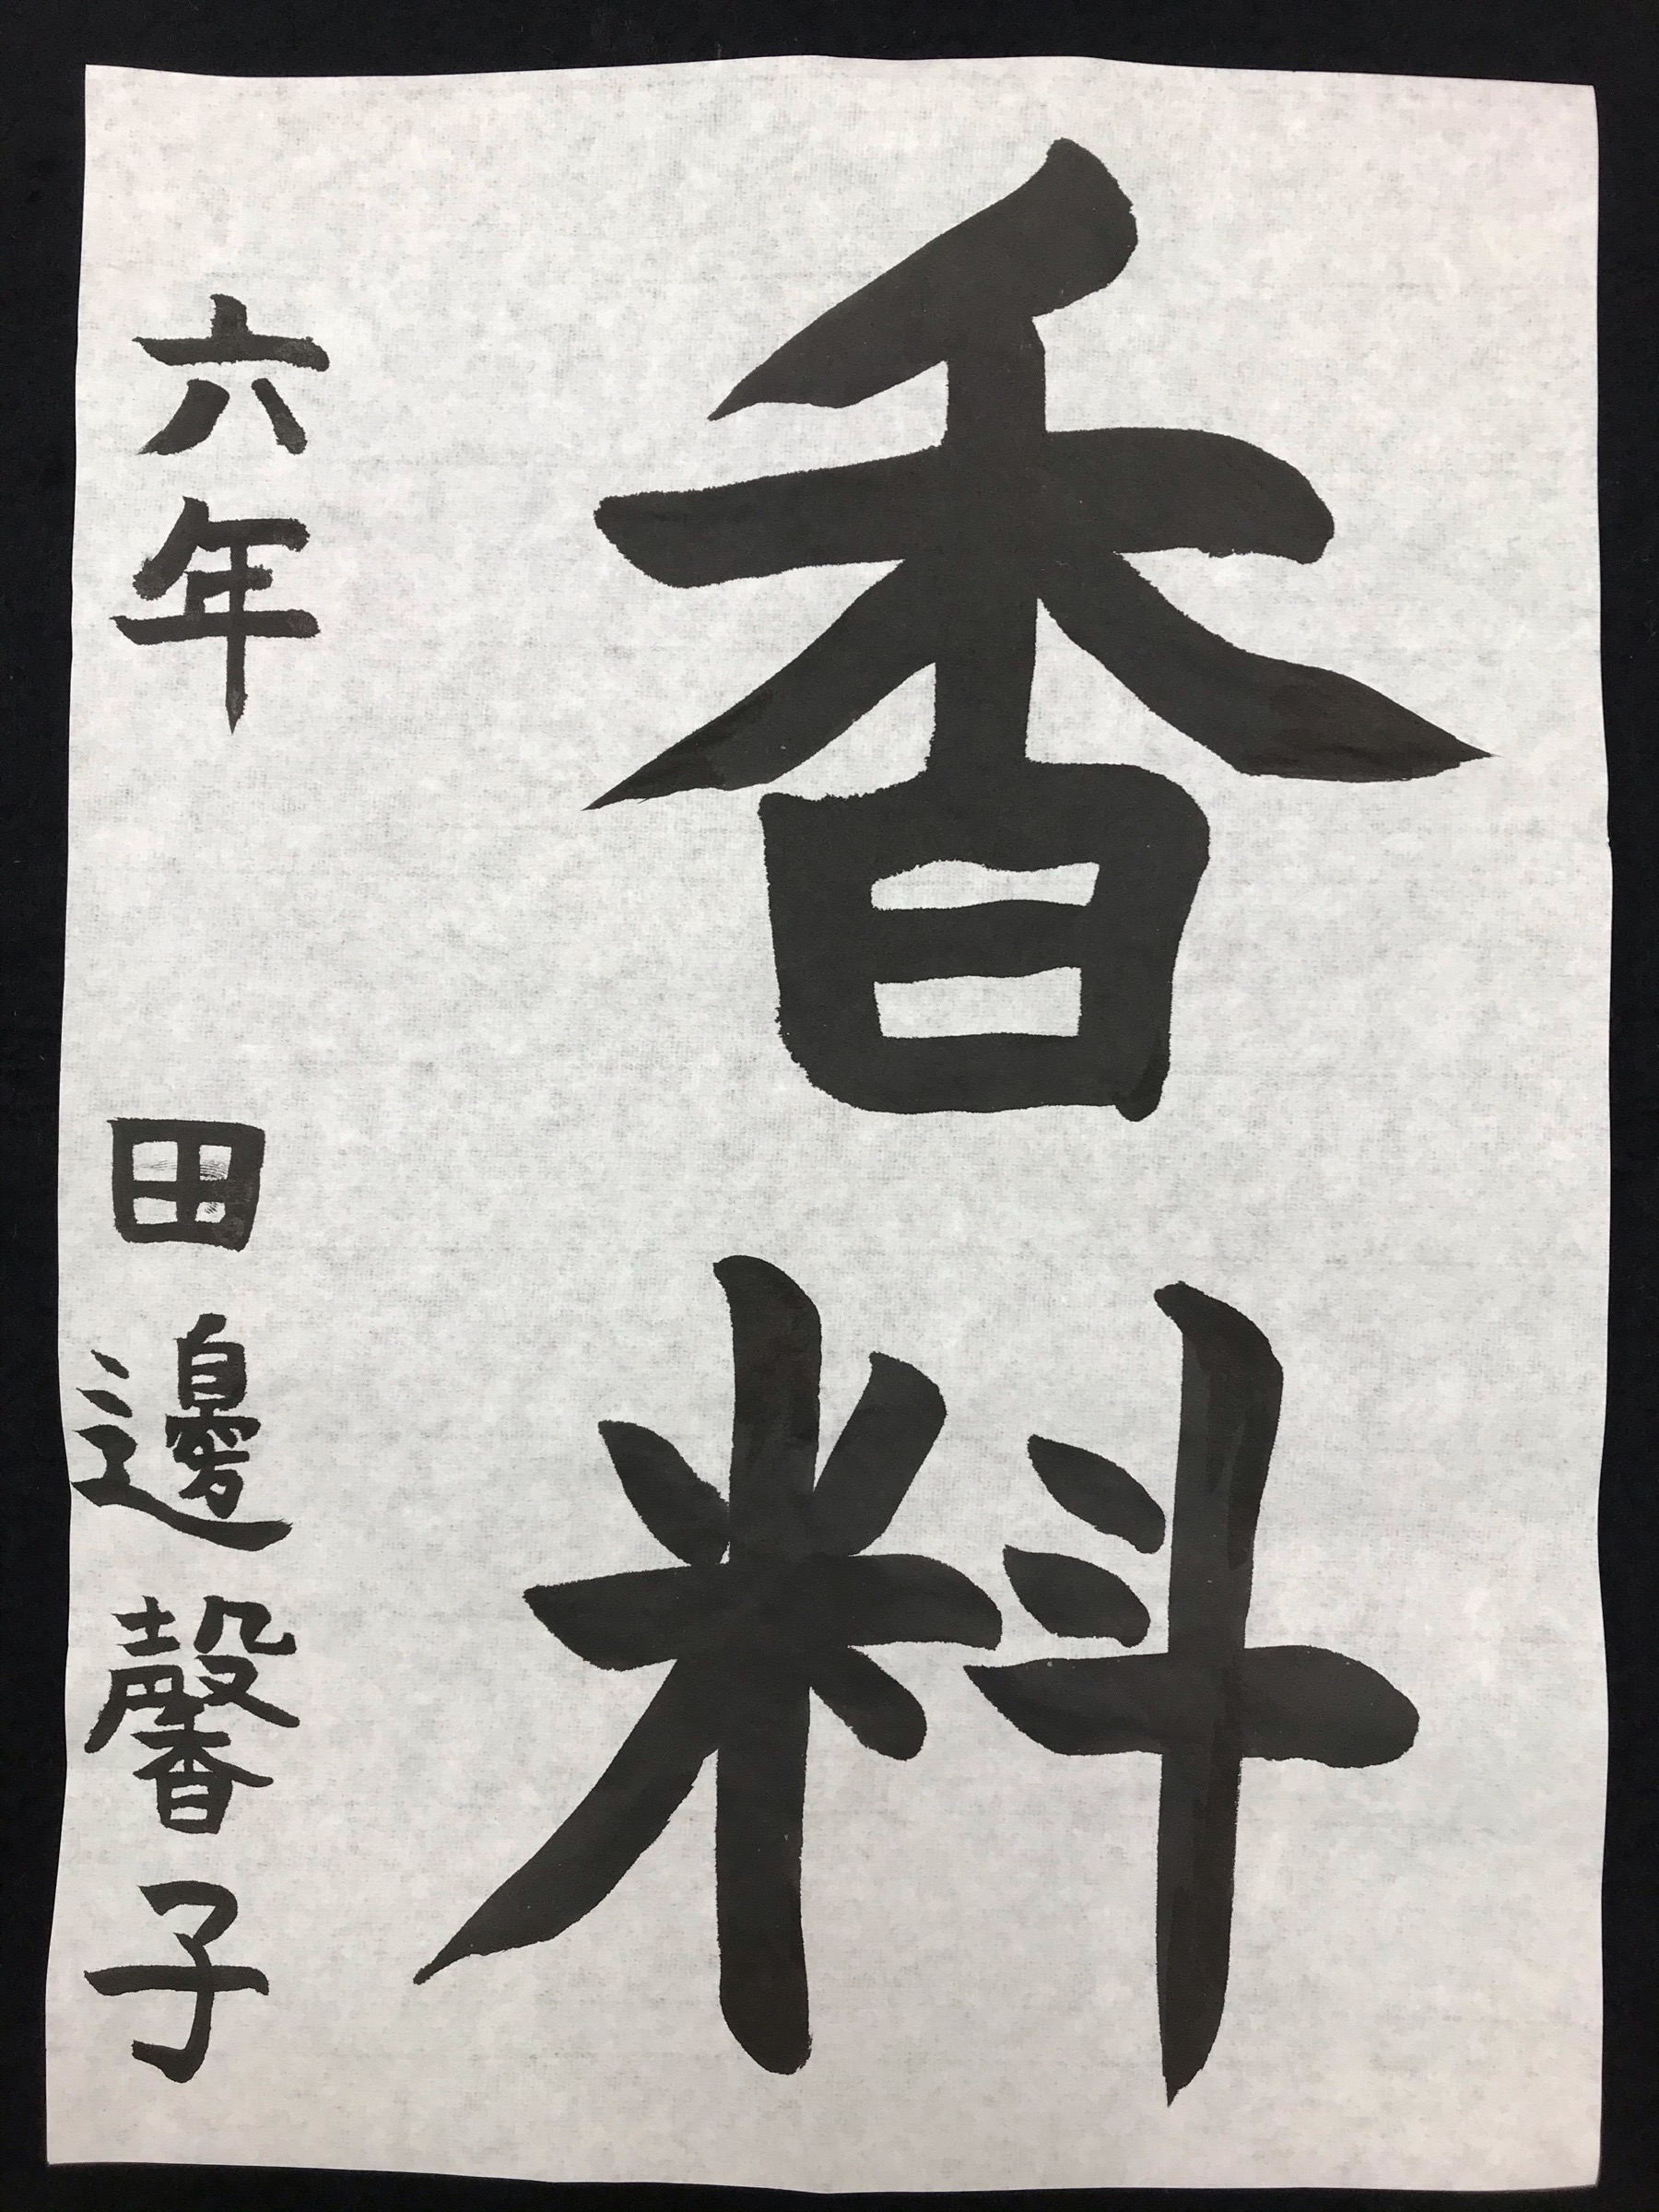 香料
六年 田邊馨子